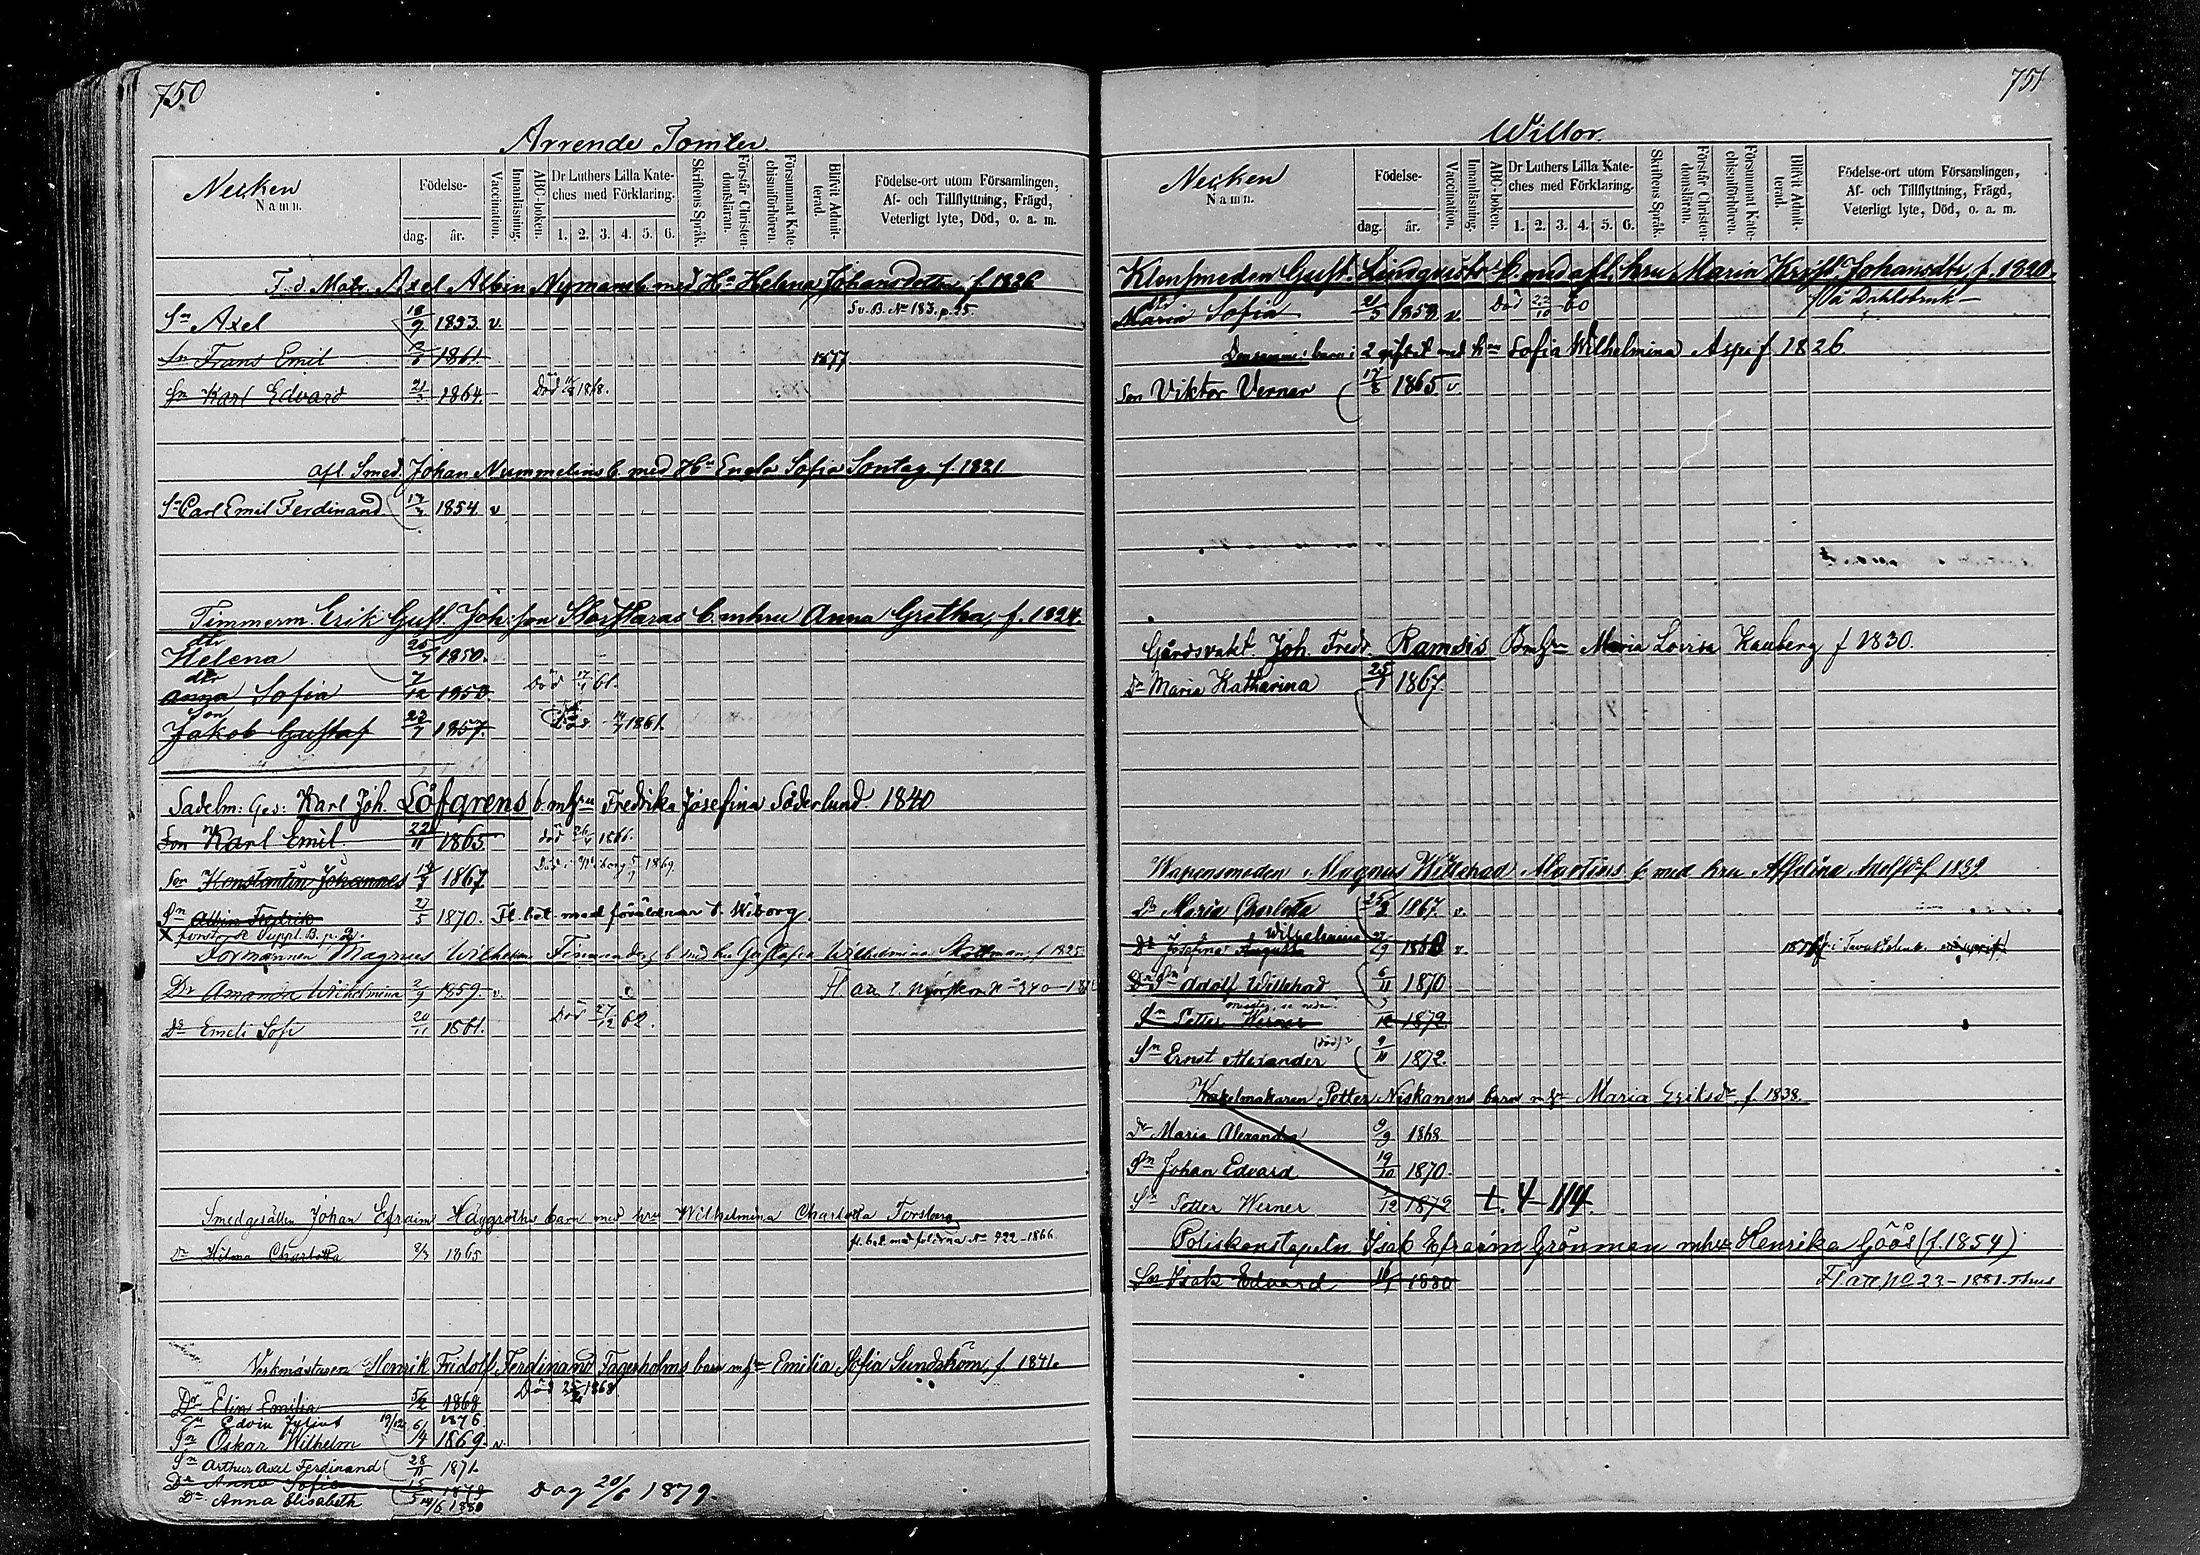 750
Arrende Tomter
Necken
Namn.
Födelse-
dag. år.
Vaccination.
Innanläsning.
ABC-boken.
Dr Luthers Lilla Kate-
ches med Förklaring.
1. 2. 3. 4. 5. 6.
Skriftens Språk.
Förstår Christen-
domsläran.
Försummat Kate-
chismiförhören.
Blifvit Admit-
terad.
Födelse-ort utom Församlingen,
Af- och Tillflyttning, Frägd,
Veterligt lyte, Död, o. a. m.
F. d. Matr. Axel Albin Nymans b. med Hn Helena Johansdotter f. 1826
Sn Axel 18/9 1853. v. Sv. B. No 183. p. 95.
Sn Frans Emil 1861. 1877
Sn Karl Edvard 21/3 1864. Död 1868.
afl. Smed. Johan Nummelins b. med Hn Engla Sofia Sontag f. 1821.
Sn Carl Emil Ferdinand 1854 v
Timmerm. Erik Gust. Joh:son b. m hru Anna Gretha, f. 1824.
dtr
Helena 25/7 1850.
dtr
Anna Sofia 7/12 1850 Död 61.
Son
Jakob Gustaf 23/7 1857. Död 1861.
Sadelm: Ges: Karl Joh. Löfgrens b. m hru Fredrika Josefina Söderlund 1840
Son Karl Emil 22/11 1865 död 1866.
Son Konstantin Johannes 1867 Död i Wiborg 1869.
Sn Albin Fredrik 27/5 1870. Fl. bet. med föräldrarna t. Wiborg.
X forts. se Suppl. B. p. 2.
Formannen Magnus Wilhelm b med hu Gustafva Wilhelmina f. 1825
Dr Amanda Wilhelmina 2/9 1859. v.
Dr Emeli Sofi 20/11 1861. Död 27/12 62.
Smedgesällen Johan Efraim Häggroths barn med hru Wilhelmina Charlotta Forsberg
Dr Hilma Charlotta 8/3 1865 fl. bet. med föräldrna No 922-1866
Verkmästaren Henrik Fridolf Ferdinand Fagerholms barn m hr Emilia Sofia Sundström, f. 1841.
Dr Elin Emilia 5/2 1868 Död 1868
Sn Edvin Julius 19/12 1876
Sn Oskar Wilhelm 1869. v.
Sn Arthur Axel Ferdinand 28/11 1871.
Dr Anna Sofia 15/5 1879 Dog 20/6 1879.
Dr Anna Elisabeth 1880
751
Willor.
Necken
Namn.
Födelse-
dag. år.
Vaccination.
Innanläsning.
ABC-boken.
Dr Luthers Lilla Kate-
ches med Förklaring.
1. 2. 3. 4. 5. 6.
Skriftens Språk.
Förstår Christen-
domsläran.
Försummat Kate-
chismiförhören.
Blifvit Admit-
terad.
Födelse-ort utom Församlingen,
Af- och Tillflyttning, Frägd,
Veterligt lyte, Död, o. a. m.
Klensmeden Gust. Lindqvists b. med afl. hru Maria Krist. Johansdtr f. 1820.
Maria Sofia 21/3 1858 v. Död 22/10 60 På Dahlsbruk
Densammes barn i 2 giftet med hru Sofia Wilhelmina Asp f 1826.
Son Viktor Verner 17/8 1865. v.
Gårdsvakt. Joh. Fredr. Ramsis B m hru Maria Lovisa Kauberg f 1830.
Dr Maria Katharina 25/1 1867.
Wapensmeden Magnus Willehad Martins b med hru f. 1839
Dr Maria Charlotta 25/3 1867. v.
Wilhelmina
Dr Josefina Augusta 1860 v. i Tavastehus
Dr Sn Adolf Willehad 6/11 1870
misstag, se nedan
Sn Petter Werner 1872.
Sn Ernst Alexander (död)? 9/11 1872.
Kakelmakaren Petter Niskanens barn m hr Maria Eriksdr, f. 1838.
Dr Maria Alexandra 9/9 1868
Sn Johan Edvard 19/10 1870
Sn Petter Werner 1872 t. 4-114
Poliskonstapeln Isak Efraim Grönman m hu Henrika Göös (f. 1854)
Sn Isak Edvard 1880 Fl att No 23-1881.